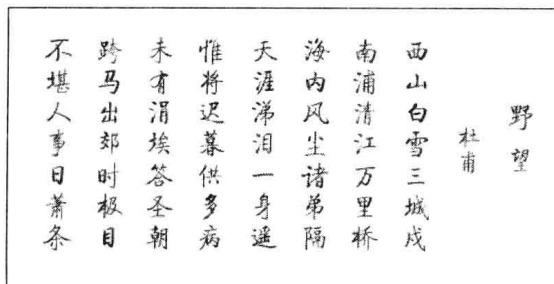 野望
杜甫
西山白雪三城戍
南浦清江万里桥
海内风尘诸弟隔
天涯涕泪一身遥
惟将迟暮供多病
未有涓埃答圣朝
跨马出郊时极目
不堪人事日萧条